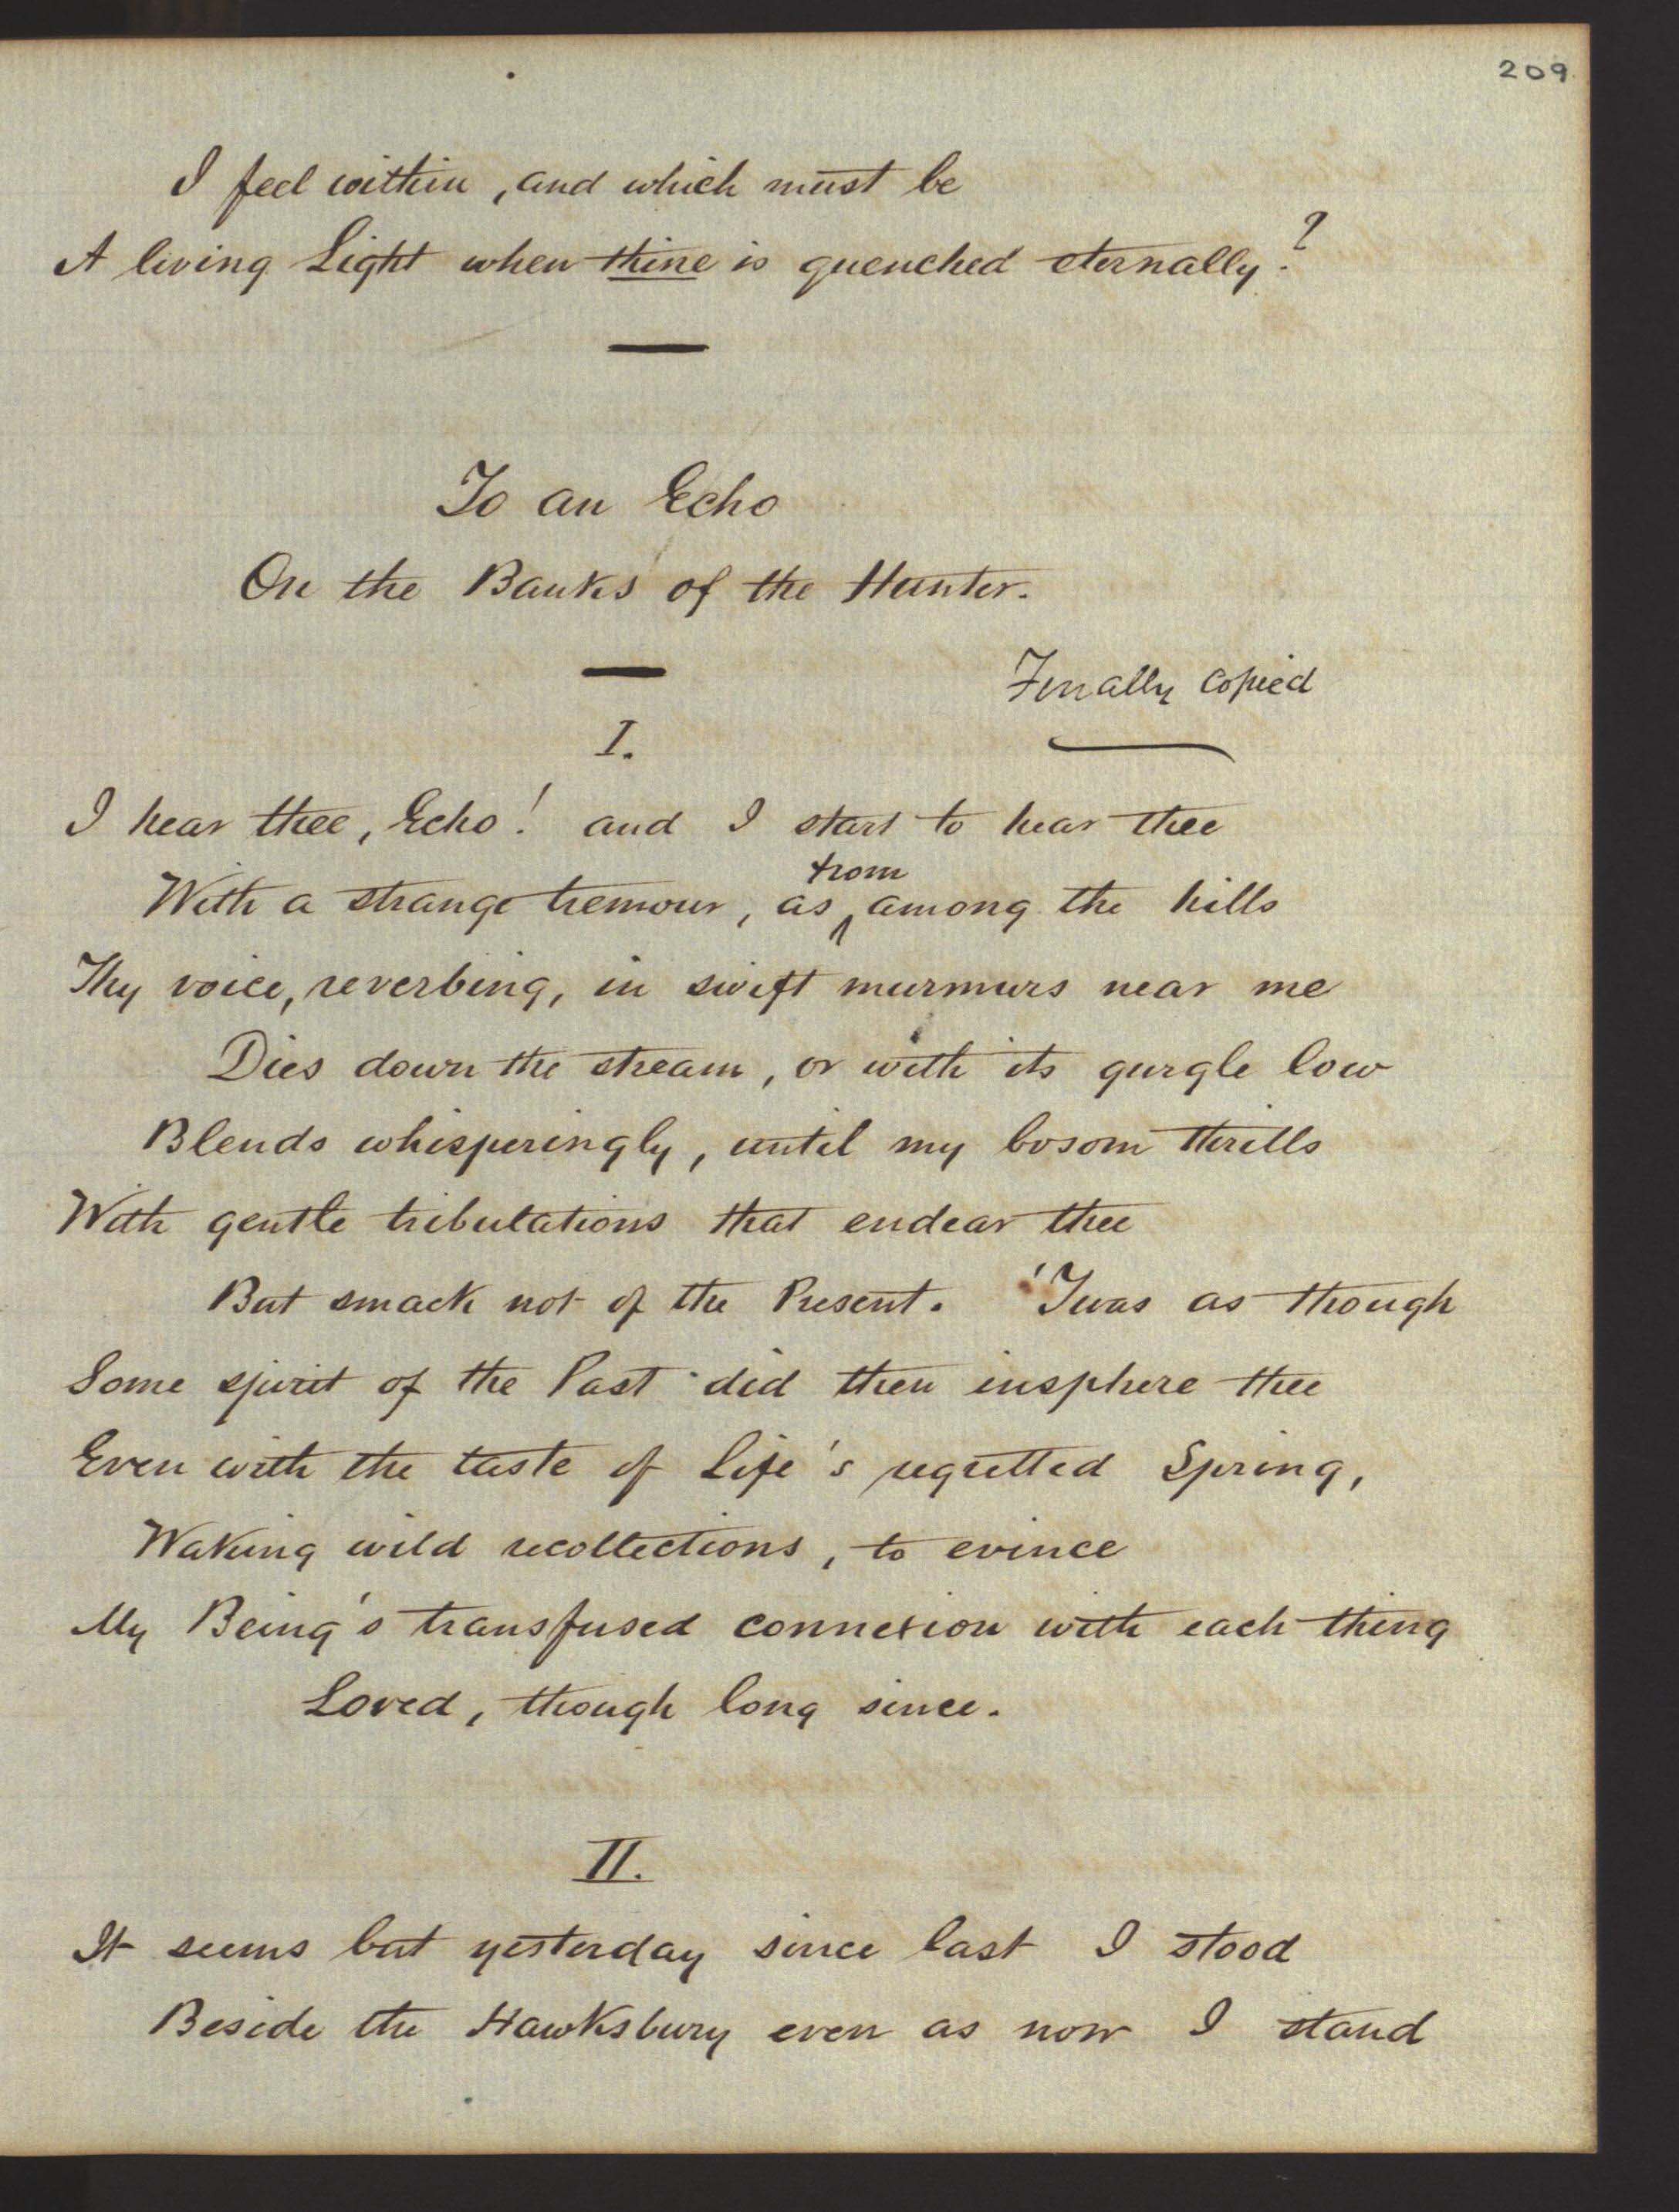 209
I feel within, and which must be
A living Light when thine is quenched eternally?
To an Echo
On the Banks of the Hunter.
Finally copied
I.
I hear thee, Echo! and I start to hear thee
With a strange tremour, as from among the hills
Thy voice, reverbing, in swift murmurs near me
Dies down the stream, or with its gurgle low
Blends whisperingly, until my bosom thrills
With gentle tribulations that endear thee
But smack not of the Present. 'Twas as though
Some spirit of the Past did then insphere thee
Even with the taste of Life's regretted Spring,
Waking wild recollections, to evince
My Being's transfused connexion with each thing
Loved, though long since.
II.
It seems but yesterday since last I stood
Beside the Hawksbury even as now I stand